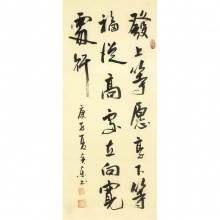 發上等愿享下等
福從高處立向寬
處行
庚子夏書